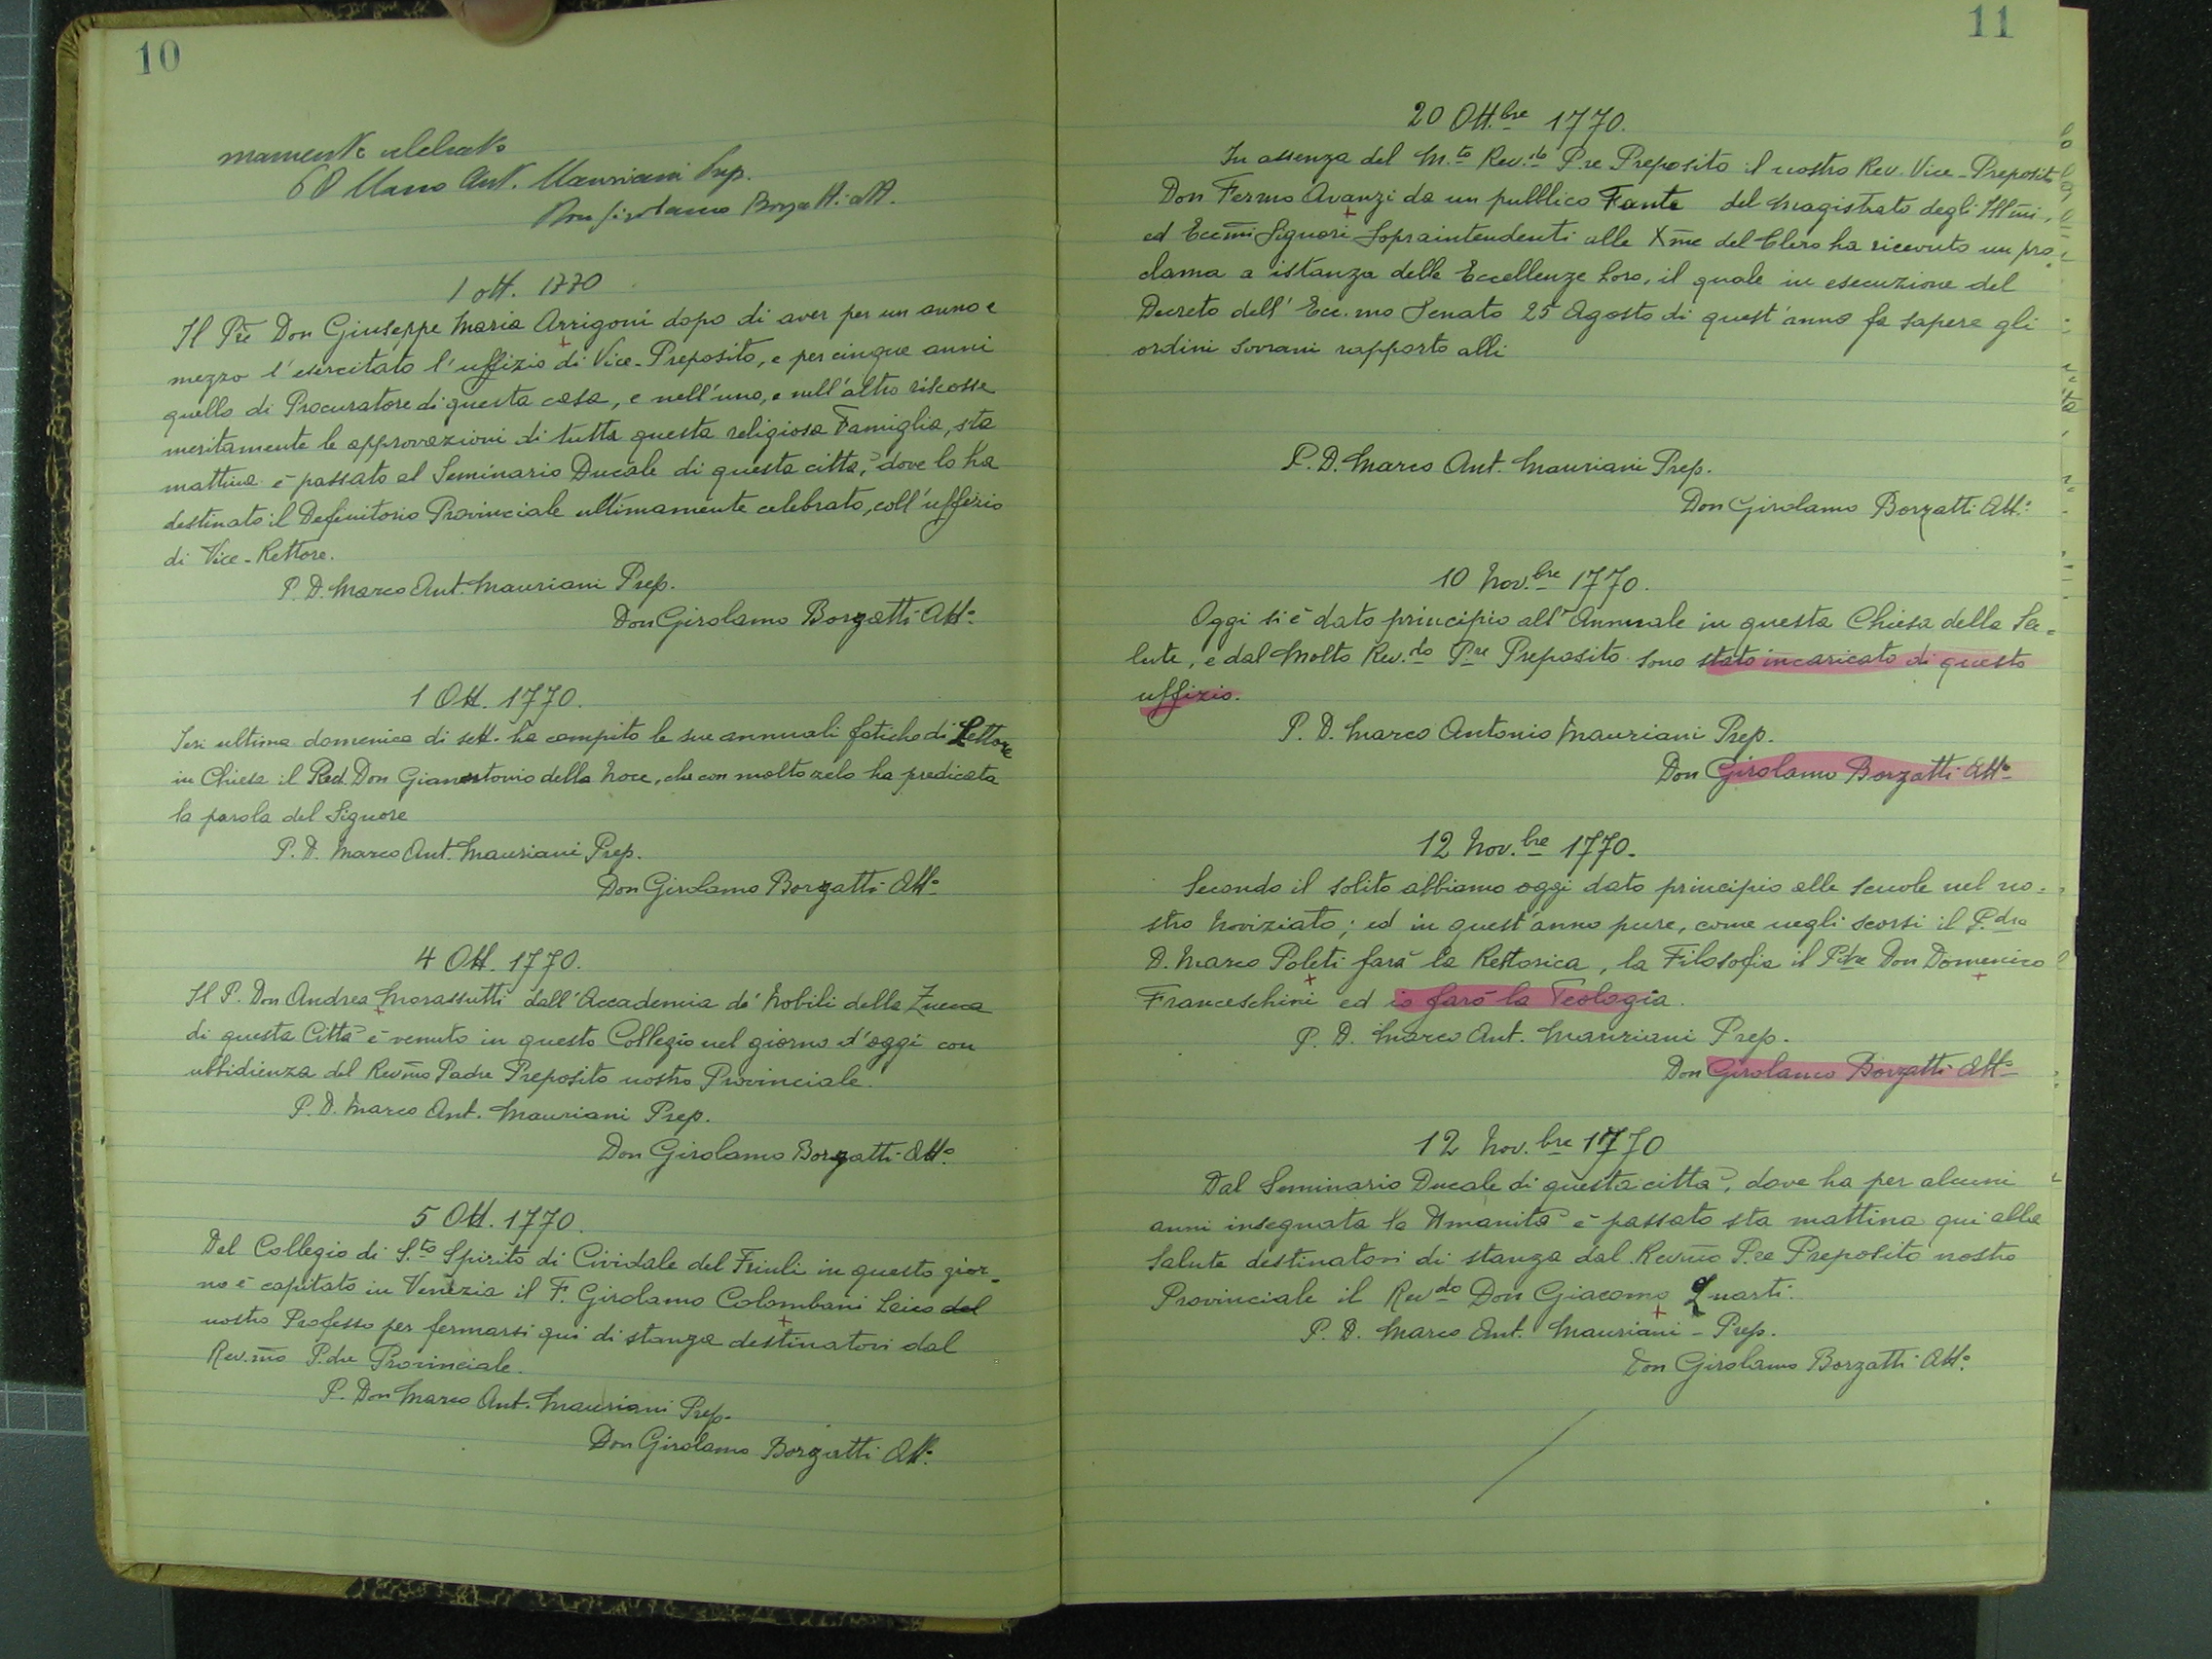 10
mamente celebrato
P D Marco Ant. Mauriani Prep.
Don Girolamo Borzatti att.
1 ott. 1770
Il Pre Don Giuseppe Maria Arrigoni dopo di aver per un anno e
mezzo l'esercitato l'uffizio di Vice-Preposito, e per cinque anni
quello di Procuratore di questa casa, e nell'uno, e nell'altro riscosse
meritamente le approvazioni di tutta questa religiosa Famiglia, sta
mattina è passato al Seminario Ducale di questa città, dove lo ha
destinato il Definitorio Provinciale ultimamente celebrato, coll'uffizio
di Vice-Rettore.
P. D. Marco Ant. Mauriani Prep.
Don Girolamo Borzatti Atto.
1 Ott. 1770.
Jeri ultima domenica di sett. ha compito le sue annuali fatiche di Lettore
in Chiesa il Red. Don Gianantonio della Noce, che con molto zelo ha predicata
la parola del Signore
P. D. Marco Ant. Mauriani Prep.
Don Girolamo Borzatti Atto
4 Ott. 1770.
Il P. Don Andrea Morassutti dall'Accademia de' Nobili della Zuecca
di questa Città è venuto in questo Collegio nel giorno d'oggi con
ubbidienza del Revmo Padre Preposito nostro Provinciale.
P. D. Marco Ant. Mauriani Prep.
Don Girolamo Borzatti Atto.
5 Ott. 1770.
Del Collegio di S.to Spirito di Cividale del Friuli in questo gior-
no è capitato in Venezia il F. Girolamo Colombani Laico del
nostro Professo per fermarsi qui di stanza destinatovi dal
Rev.mo P.dre Provinciale.
P. Don Marco Ant. Mauriani Prep.
Don Girolamo Borzatti Atto.
11
20 Ott.bre 1770.
In assenza del M.to Rev.do P.re Preposito il nostro Rev. Vice-Preposito
Don Fermo Avanzi da un pubblico Fante del Magistrato degli Illmi,
ed Eccmi Signori Sopraintendenti alle Xme del Clero ha ricevuto un pro-
clama a istanza delle Eccellenze Loro, il quale in esecuzione del
Decreto dell' Ecc.mo Senato 25 Agosto di quest'anno fa sapere gli
ordini sovrani rapporto alli
P. D. Marco Ant. Mauriani Prep.
Don Girolamo Borzatti Atto.
10 Nov.bre 1770.
Oggi si è dato principio all'Annuale in questa Chiesa della Sa=
lute, e dal Molto Rev.do Pre Preposito sono stato incaricato di questo
uffizio.
P. D. Marco Antonio Mauriani Prep.
Don Girolamo Borzatti Atto
12 Nov.bre 1770.
Secondo il solito abbiamo oggi dato principio alle scuole nel no-
stro Noviziato; ed in quest'anno pure, come negli scorsi il P.dre
D. Marco Poleti farà la Rettorica, la Filosofia il Pdre Don Domenico
Franceschini ed io farò la Teologia.
P. D. Marco Ant. Mauriani Prep.
Don Girolamo Borzatti Atto
12 Nov.bre 1770
Dal Seminario Ducale di questa città, dove ha per alcuni
anni insegnata la Umanità è passato sta mattina qui alla
Salute destinatovi di stanza dal Revmo P.re Preposito nostro
Provinciale il Revdo Don Giacomo Quarti.
P. D. Marco Ant. Mauriani - Prep.
Don Girolamo Borzatti Atto.